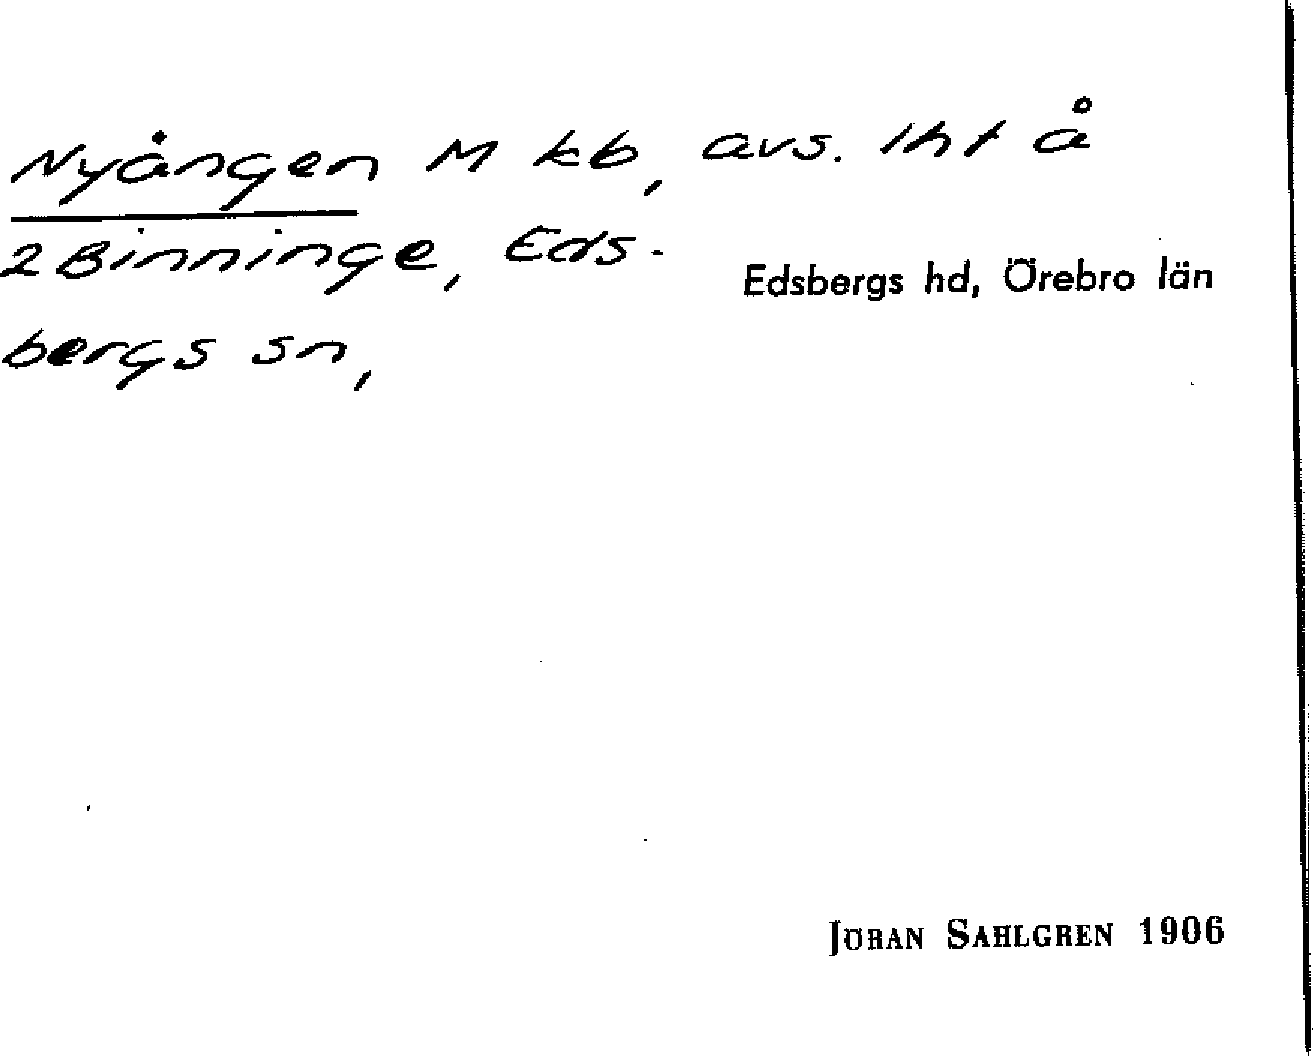 Nyången M kb, avs. lht å
2 Binninge, Eds-
bergs sn,
Edsbergs hd, Örebro län
JÖRAN SAHLGREN 1906